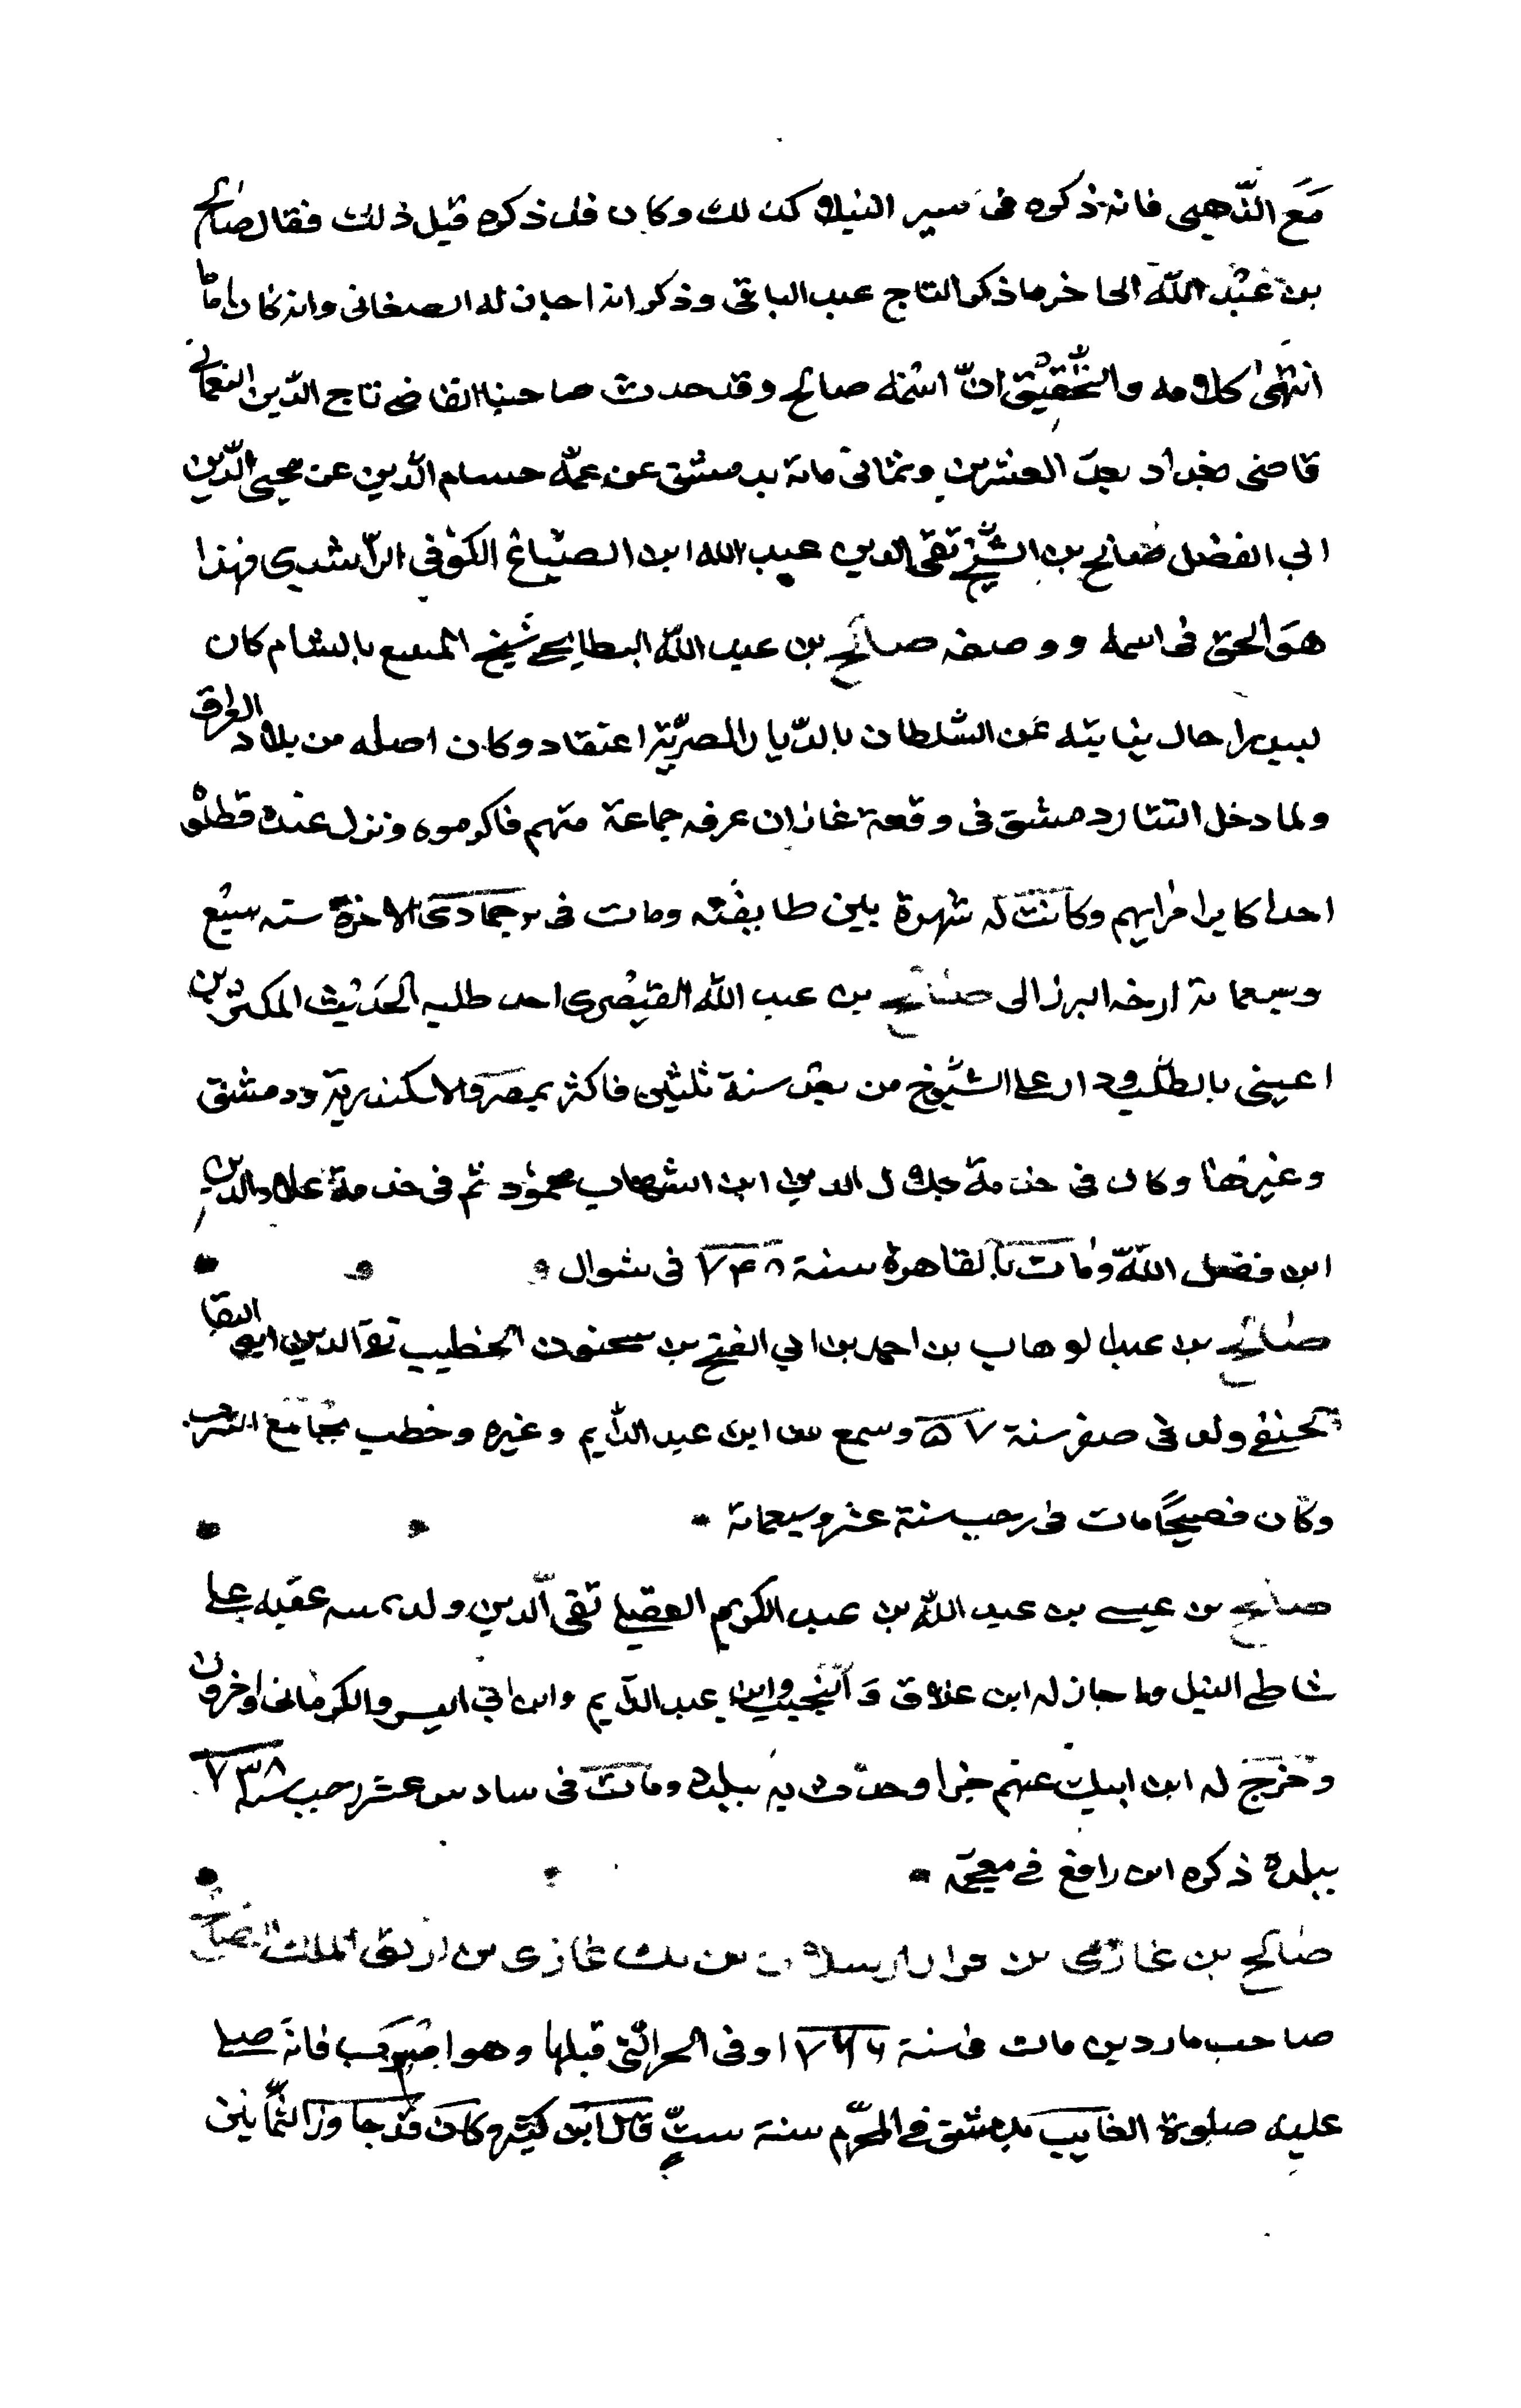 مع الذهبي فانه ذكره فى سير النبلاء كذلك وكان قد ذكره قبل ذلك فقال صالح
بن عبد الله الى اخر ما ذكر التاج عبد الباقى وذكر انه اجاز له الصغانى وانه كان اماما
انتهى كلامه والتحقيق ان اسمه صالح وقد حدث صاحبنا القاضى تاج الدين النعمانى
قاضى بغداد بعد العشرين وثمانى مائة بدمشق عن عمه حسام الدين عن محيى الدين
ابى الفضل صالح بن الشيخ تقى الدين عبد الله ابن الصباغ الكوفى الراشدى فهذا
هو الحق فى اسمه ووصفه صالح بن عبد الله البطايحى شيخ المنيبع بالشام كان
لبيبرا حال نيابته عن السلطان بالديار المصرية اعتقاد وكان اصله من بلاد العراق
ولما دخل التتار دمشق فى وقعة غازان عرفه جماعة منهم فاكرموه ونزل عنده قطلو
احد اكابر امرايهم وكانت له شهرة بين طايفته ومات فى جمادى الاخرة سنه سبع
وسبعمائة ارخه البرزالى صالح بن عبد الله القيصرى احد طلبه الحديث المكثرين
اعينى بالطلب ودار على الشيوخ من بعد سنة ثلثين فاكثر بمصر والاسكندرية ودمشق
وغيرها وكان فى خدمة جلال الدين ابن الشهاب محمود ثم فى خدمة علاء الدين
ابن فضل الله ومات بالقاهرة سنة ٧٤٨ فى شوال
صالح بن عبد الوهاب بن احمد بن ابي الفتح بن سحنون الخطيب تقى الدين ابو البقا
الحنفى ولد فى صفر سنة ٥٧ وسمع من ابن عبد الدايم وغيره وخطب بجامع النيرب
وكان فصيحا مات فى رجب سنة عشر وسبعمائة
صالح بن عيسى بن عبد الله بن عبد الكريم العقيلى تقى الدين ولد عقبه على
شاطى النيل واجاز له ابن علاق والنجيب وابن عبد الدايم وابن ابي اليسر والكرمانى واخرون
وخرج له ابن ايبك عنهم جزا وحدث به ببلده ومات فى سادس عشر رجب سنه ٧٣٨
ببلده ذكره ابن رافع فى معجمه
صالح بن غازى بن قرا ارسلان بن بك غازى بن ارتق الملك الصالح
صاحب ماردين مات فى سنة ٧٦٦ او فى التى قبلها وهو فانه صلى
عليه صلوة الغايب بدمشق فى المحرم سنة ست قال ابن كثير وكان قد جاوز الثمانين